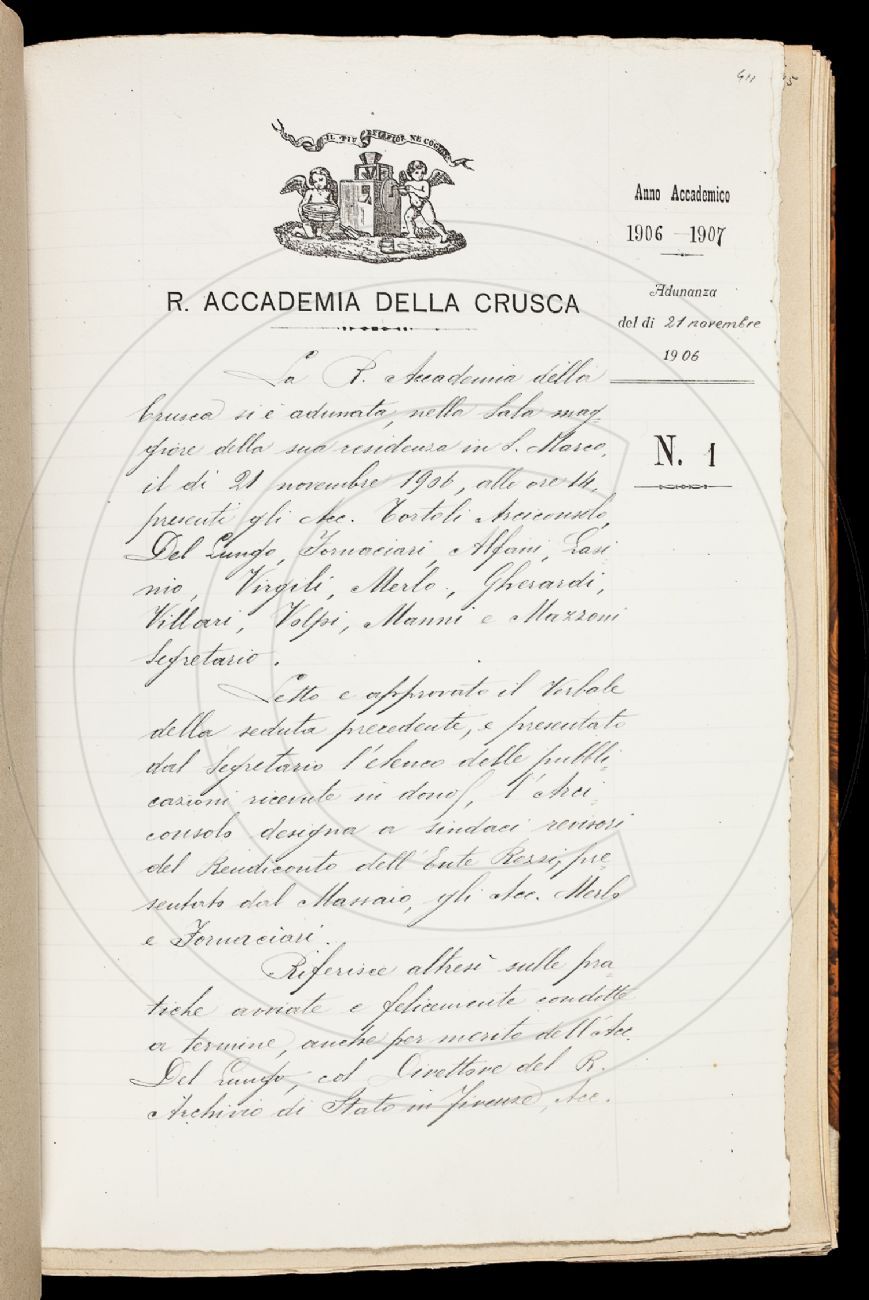 IL PIÙ BEL FIOR NE COGLIE
R. ACCADEMIA DELLA CRUSCA
Anno Accademico
1906-1907
Adunanza
del dì 21 novembre
1906
N. 1
La R. Accademia della
Crusca si è adunata, nella Sala mag-
giore della sua residenza in S. Marco,
il dì 21 novembre 1906, alle ore 14,
presenti gli Acc. Tortoli Arciconsolo,
Del Lungo, Fornaciari, Alfani, Lasi
nio, Virgili, Merlo, Gherardi,
Villari, Volpi, Manni e Mazzoni
Segretario.
Letto e approvato il Verbale
della seduta precedente, e presentato
dal Segretario l'elenco delle pubbli-
cazioni ricevute in dono, l'Arci-
consolo designa a sindaci revisori
del Rendiconto dell'Ente Rezzi, pre-
sentato dal Massaio, gli Acc. Merlo
e Fornaciari.
Riferisce altresì sulle pra-
tiche avviate e felicemente condotte
a termine, anche per merito dell'Acc.
Del Lungo, col Direttore del R.
Archivio di Stato in Firenze, Acc.